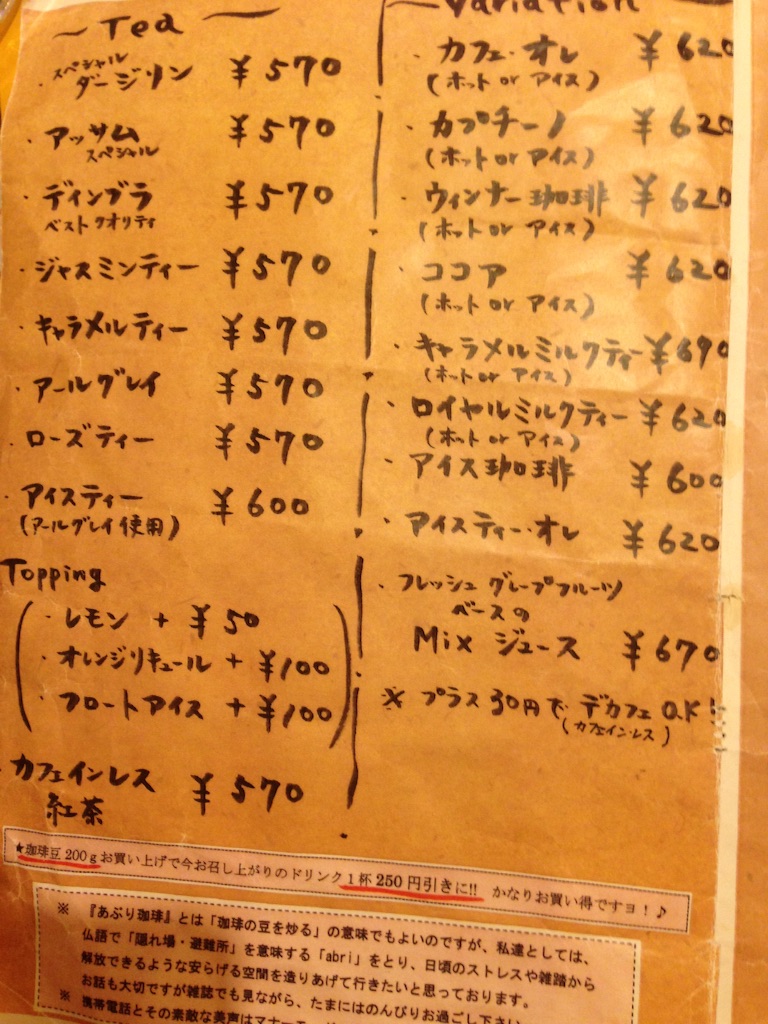 ~ Tea ~
・スペシャル
ダージリン ¥570
・アッサム ¥570
スペシャル
・ディンブラ ¥570
ベストクオリティ
・ジャスミンティー ¥570
・キャラメルティー ¥570
・アールグレイ ¥570
・ローズティー ¥570
・アイスティー ¥600
(アールグレイ使用)
Topping
・レモン + ¥50
・オレンジリキュール + ¥100
・フロートアイス + ¥100
・カフェインレス ¥570
紅茶
Variation
・カフェ・オレ ¥620
(ホット or アイス)
・カプチーノ ¥620
(ホット or アイス)
・ウィンナー珈琲 ¥620
(ホット or アイス)
・ココア ¥620
(ホット or アイス)
・キャラメルミルクティー ¥690
(ホット or アイス)
・ロイヤルミルクティー ¥620
(ホット or アイス)
・アイス珈琲 ¥600
・アイスティー・オレ ¥620
・フレッシュグレープフルーツ
ベースの
Mix ジュース ¥670
※ プラス30円で デカフェ O.K!!
(カフェインレス)
★珈琲豆200gお買い上げで今お召し上がりのドリンク1杯250円引きに!! かなりお買い得ですヨ!♪
※ 『あぶり珈琲』とは「珈琲の豆を炒る」の意味でもよいのですが、私達としては、
仏語で「隠れ場・避難所」を意味する「abri」をとり、日頃のストレスや雑踏から
解放できるような安らげる空間を造りあげて行きたいと思っております。
お話も大切ですが雑誌でも見ながら、たまにはのんびりお過ごし下さい
※ 携帯電話とその素敵な美声はマナーモー